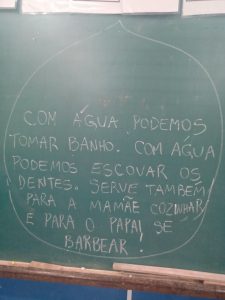 COM ÁGUA PODEMOS
TOMAR BANHO. COM AGUA
PODEMOS ESCOVAR OS
DENTES. SERVE TAMBÉM
PARA A MAMÃE COZINHAR
É PARA O PAPAI SE
BARBEAR.